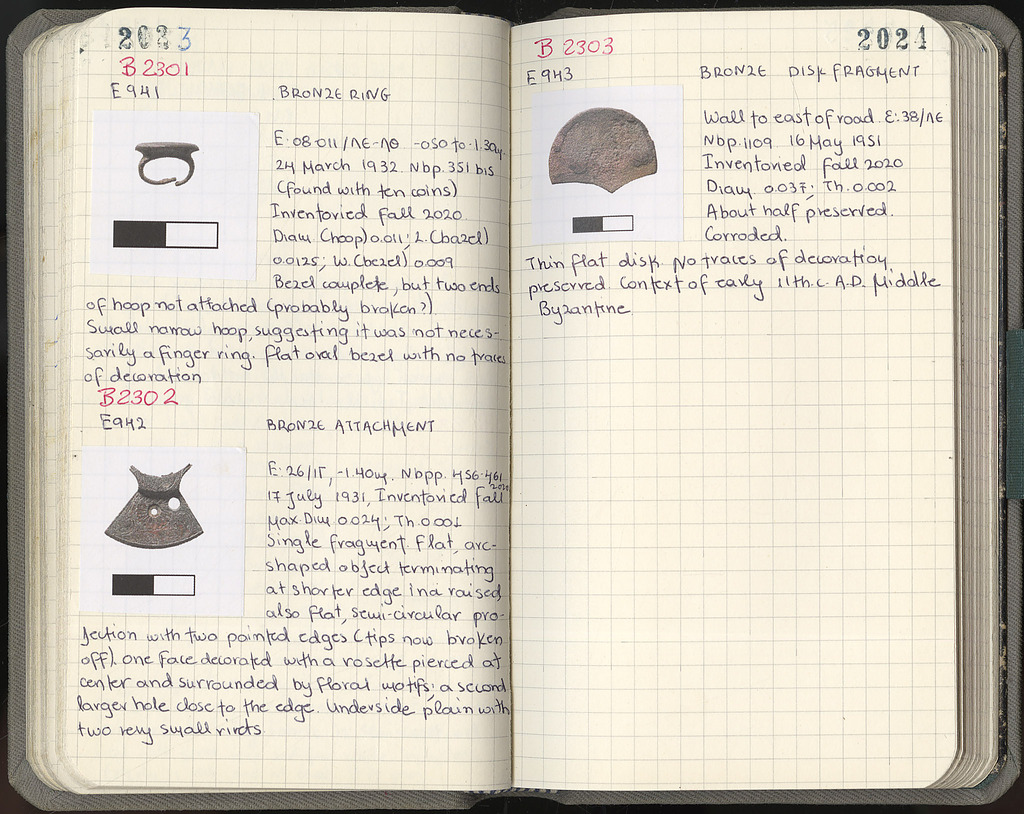 2023
B 2301
E 941 BRONZE RING
E: 08-011/ΛΕ-ΛΘ -0.50 to -1.30μ.
24 March 1932. Nbp. 351 bis
(found with ten coins)
Inventoried Fall 2020
Diam (hoop) 0.011; L. (bezel)
0.0125; W. (bezel) 0.009
Bezel complete, but two ends
of hoop not attached (probably broken?).
Small narrow hoop, suggesting it was not neces-
sarily a finger ring. Flat oval bezel with no traces
of decoration
B2302
E942 BRONZE ATTACHMENT
E: 26/ΙΓ, -1.40μ. Nbpp. 456-461
17 July 1931, Inventoried Fall 2020
Max. Dim 0.024; Th. 0.001
Single fragment. Flat, arc-
shaped object terminating
at shorter edge in a raised,
also flat, semi-circular pro-
jection with two pointed edges (tips now broken
off). One face decorated with a rosette pierced at
center and surrounded by floral motifs; a second
larger hole close to the edge. Underside plain with
two very small rivets.
2024
B 2303
E 943 BRONZE DISK FRAGMENT
Wall to east of road. E: 38/ΛΕ
Nbp. 1109 16 May 1951
Inventoried Fall 2020
Diam. 0.037; Th. 0.002
About half preserved.
Corroded.
Thin flat disk. No traces of decoration
preserved. Context of early 11th. c. A.D. Middle
Byzantine